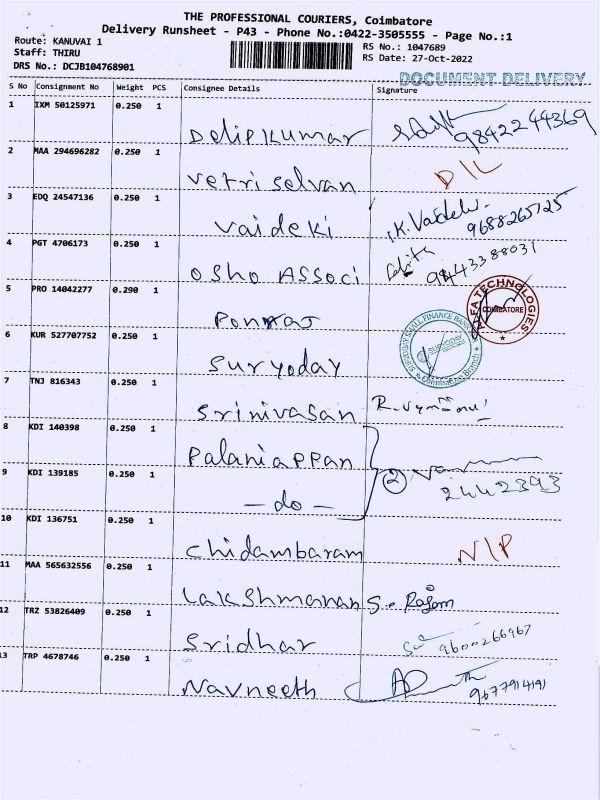 THE PROFESSIONAL COURIERS, Coimbatore
Delivery Runsheet - P43 - Phone No.:0422-3505555 - Page No.:1
Route: KANUVAI 1
Staff: THIRU
DRS No.: DCJB104768901
RS No.: 1047689
RS Date: 27-Oct-2022
DOCUMENT DELIVERY
S No Consignment No Weight PCS Consignee Details Signature
1 IXM 50125971 0.250 1 Delip Kumar 9842244369
2 MAA 294696282 0.250 1 Vetri Selvan D/L
3 EDQ 24547136 0.250 1 Vaideki K. Vaideki 9688265725
4 PGT 4706173 0.250 1 Osho Associ 9443388031
5 PRO 14042277 0.290 1 Ponraj
ALFA TECHNOLOGIES
COIMBATORE
6 KUR 527707752 0.250 1 Suryoday
SURYODAY SMALL FINANCE BANK
SURYODAY
Coimbatore Branch
7 TNJ 816343 0.250 1 Srinivasan
8 KDI 140398 0.250 1 Palaniappan
9 KDI 139185 0.250 1 - do - 2 2442393
10 KDI 136751 0.250 1 Chidambaram N/P
11 MAA 565632556 0.250 1 Lakshmanan
12 TRZ 53826409 0.250 1 Sridhar 9600266967
13 TRP 4678746 0.250 1 Navneeth 9677914191